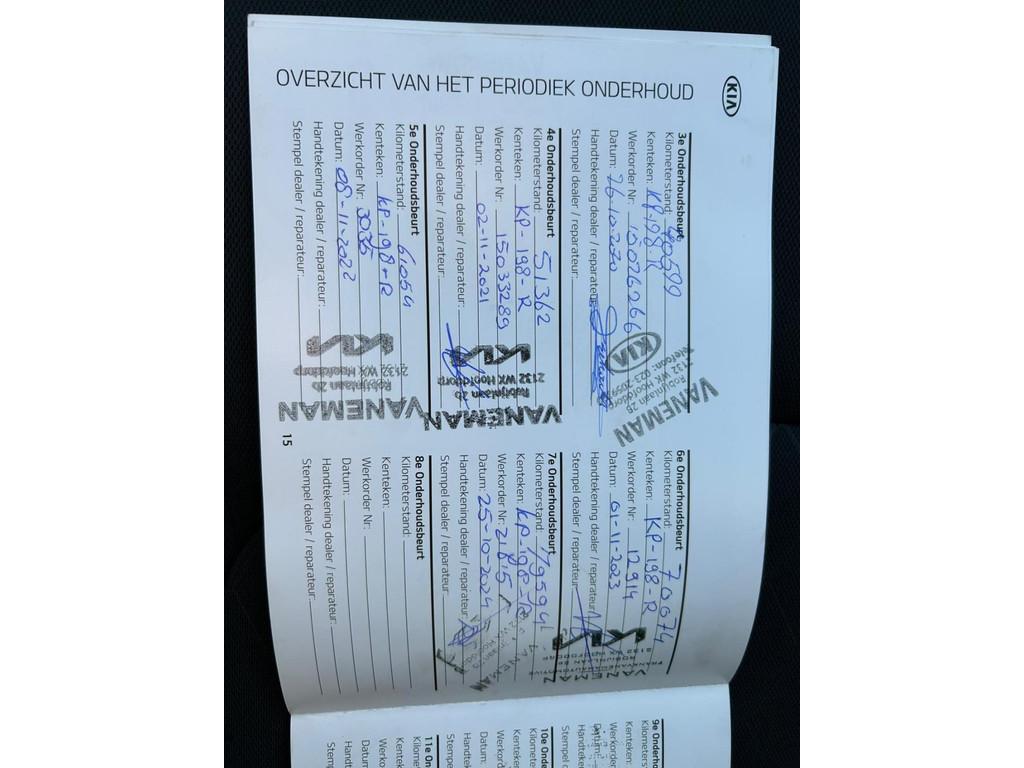 KIA
OVERZICHT VAN HET PERIODIEK ONDERHOUD
3e Onderhoudsbeurt
Kilometerstand: 40599
Kenteken: KP-198-R
Werkorder Nr: 15026266
Datum: 26-10-2020
Handtekening dealer / reparateur:
Stempel dealer / reparateur:
KIA
VANEMAN
Robijnlaan 26
2132 WX Hoofddorp
4e Onderhoudsbeurt
Kilometerstand: 51362
Kenteken: KP-198-R
Werkorder Nr: 15033289
Datum: 02-11-2021
Handtekening dealer / reparateur:
Stempel dealer / reparateur:
KIA
VANEMAN
Robijnlaan 20
2132 WX Hoofddorp
5e Onderhoudsbeurt
Kilometerstand: 61054
Kenteken: KP-198-R
Werkorder Nr: 3035
Datum: 08-11-2022
Handtekening dealer / reparateur:
Stempel dealer / reparateur:
KIA
VANEMAN
Robijnlaan 20
2132 WX Hoofddorp
15
6e Onderhoudsbeurt
Kilometerstand: 70074
Kenteken: KP-198-R
Werkorder Nr: 12914
Datum: 01-11-2023
Handtekening dealer / reparateur:
Stempel dealer / reparateur:
KIA
2132 WX HOOFDDORP
7e Onderhoudsbeurt
Kilometerstand: 79594
Kenteken: KP-198-R
Werkorder Nr: 21815
Datum: 25-10-2024
Handtekening dealer / reparateur:
Stempel dealer / reparateur:
VANEMAN
8e Onderhoudsbeurt
Kilometerstand:
Kenteken:
Werkorder Nr:
Datum:
Handtekening dealer / reparateur:
Stempel dealer / reparateur:
9e Onderh
Kilometers
Kenteken:
Werkorder
Datum:
Handteke
Stempel d
10e Onde
Kilometer
Kenteke
Werkord
Datum:
Handtek
Stempel
11e On
Kilome
Kente
Werko
Datu
Hand
Stemp